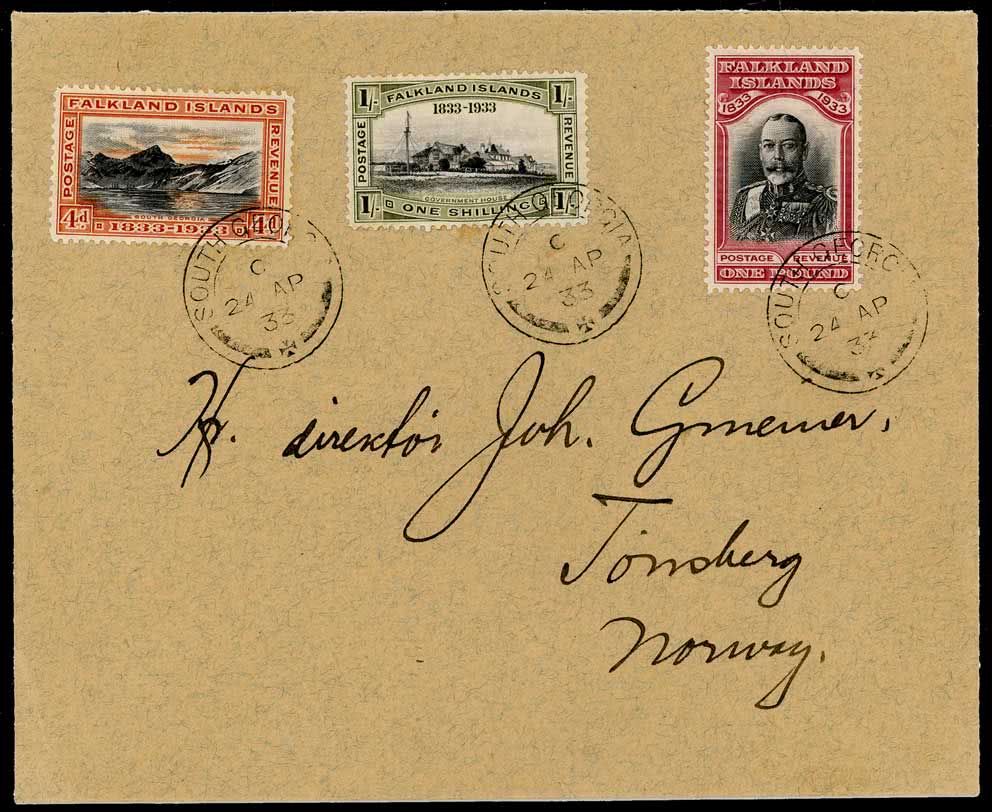 FALKLAND ISLANDS
POSTAGE
REVENUE
SOUTH GEORGIA
4d
1833-1933
4d
FALKLAND ISLANDS
1/-
1/-
1833-1933
POSTAGE
REVENUE
GOVERNMENT HOUSE
1/-
ONE SHILLING
1/-
FALKLAND
ISLANDS
1833
1933
POSTAGE
REVENUE
ONE POUND
SOUTH GEORG
C
24 AP
33
SOUTH GEORGIA
C
24 AP
33
SOUTH GEORG
C
24 AP
33
Hr. direktör Joh.
Tönsberg
Norway.